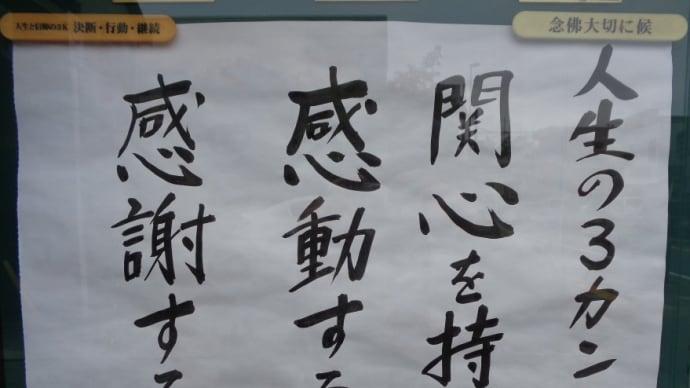 念佛大切に候
人生と信仰の3K 決断・行動・継続
人生の3カン
関心を持
感動する
感謝する